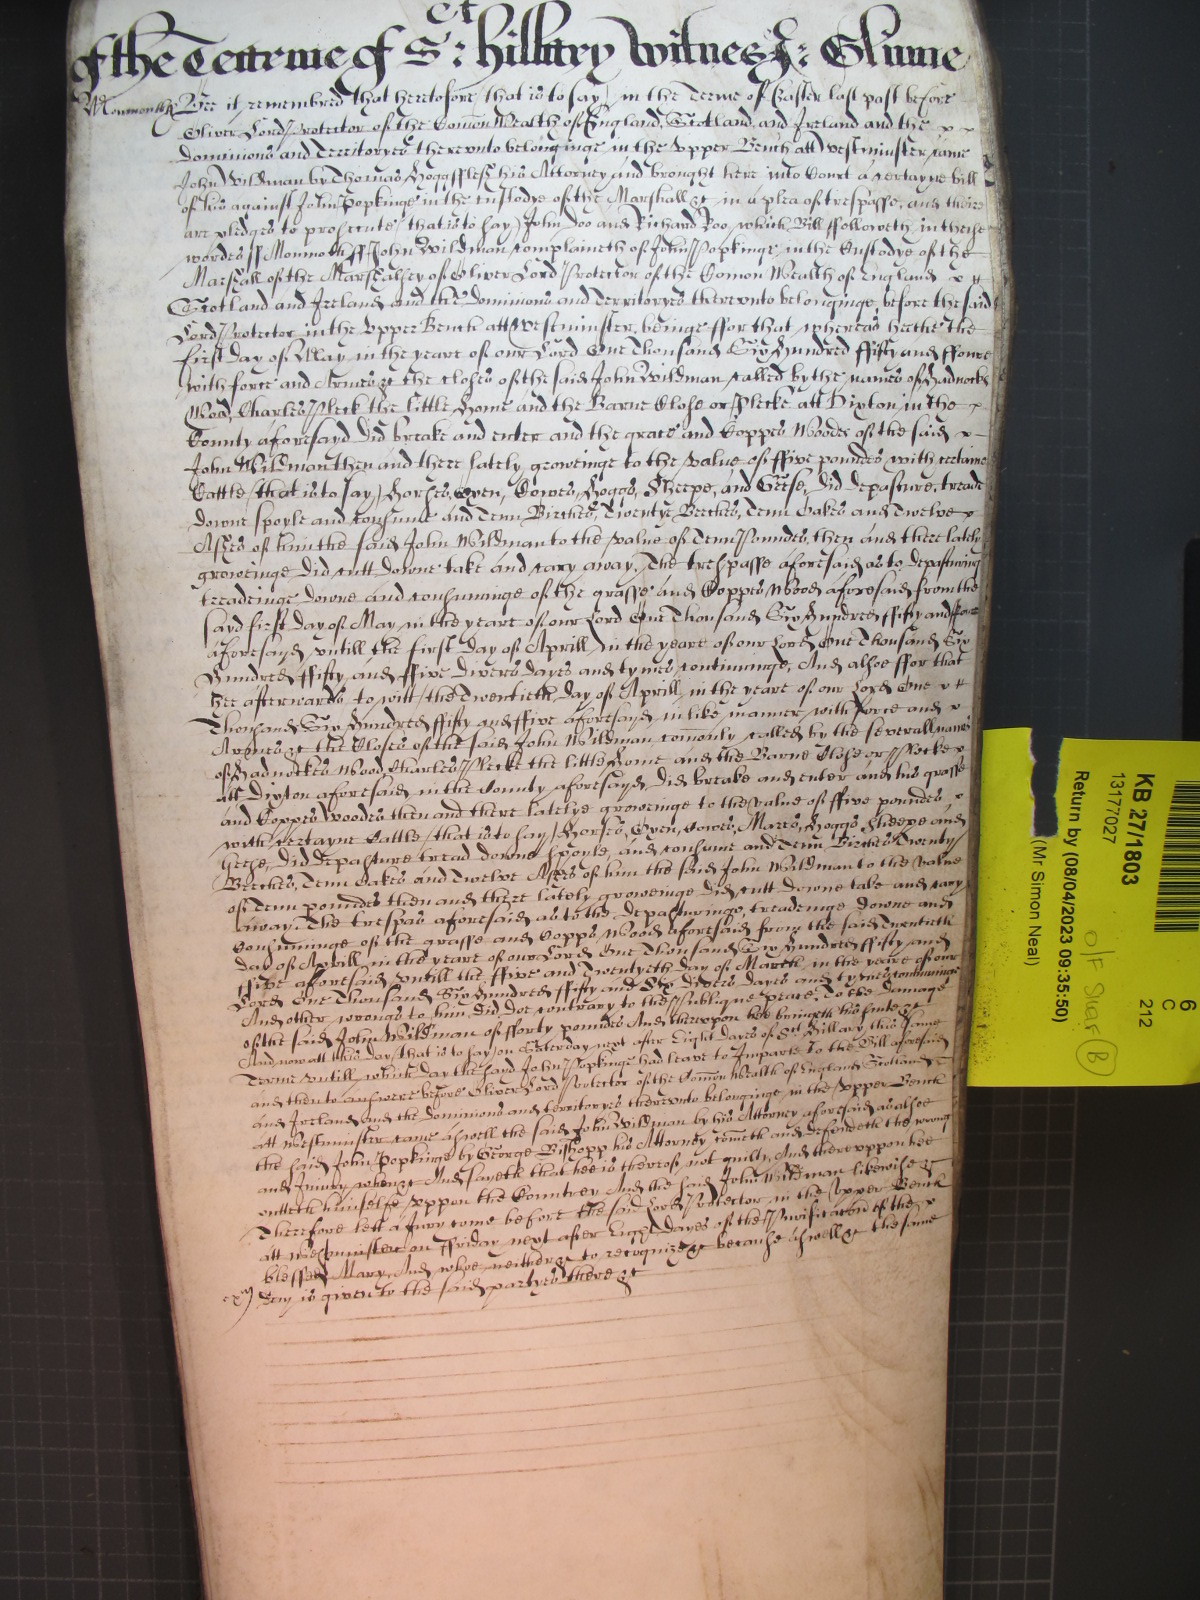 of the Tearme of St: hillary Witnes J: Glynne
Monmouth ss Bee it remembred that heretofore (that is to say) in the Terme of Easter last past before
Oliver Lord Protector of the Com̃on Wealth of England, Scotland, and Ireland and the
dominions and Territoryes therevnto belonginge in the vpper Bench att Westminster came
John Wildman by Thomas his Attorney and brought here into Court a certayne bill
of his against John Hopkinge in the Custodye of the Marshall &c in a plea of trespasse, and there
are pledges to prosecute (that is to say) John Doo and Richard Roo, which Bill ffolloweth in these
wordes ss Monmoth ss John Wildman complaineth of John Hopkinge in the Custodye of the
Marshall of the Marshalsey of Oliver Lord Protector of the Comon Wealth of England
Scotland and Ireland and the Dominions and Territoryes therevnto belonginge before the said
Lord Protector in the vpper Bench att Westminster, beinge ffor that whereas hee the
first Day of May in the yeare of our Lord One Thousand Six Hundred ffifty and ffoure
with force and Armes &c the closes of the said John Wildman called by the names of Hadnocks
Wood, Charles Pleck the little Home and the Barne Close or Plecke att Dixton in the
County aforesayd did breake and enter and the grase and Coppes Woodes of the said
John Wildman then and there lately groweinge to the value of ffive poundes with certaine
Cattle (that is to say) Horses, Oxen, Cowes, Hoggs, Sheepe, and Geese, did depasture, treade
downe spoyle and consume and Tenn Birches, Twentye Beeches, Tenn Oakes and Twelve
Ashes of him the said John Wildman to the value of Tenn Poundes, then and there lately
groweinge did cutt downe take and cary away, The tresspasse aforesaid as to depasturing
treadeinge downe and consuminge of the grasse and Coppes Wood aforesaid from the
sayd first Day of May in the yeare of our Lord One Thousand Six Hundred ffifty and ffoure
aforesayd vntill the first Day of Aprill in the yeare of our Lord One Thousand Six
Hundred ffifty and ffive divers dayes and tymes continuinge, And alsoe ffor that
hee afterwards to witt the Twentieth Day of Aprill in the yeare of our Lord One
Thousand Six Hundred ffifty and ffive aforesayd in like manner with fforce and
Armes &c the Closes of the said John Wildman com̃only called by the severall names
of Hadnockes Wood Charles Plecke the little Home and the Barne Close or Plecke
att Dixton aforesaid in the County aforesayd did breake and enter and his grasse
and Coppes Woodes then and there latelye groweinge to the value of ffive poundes
with certayne Cattle (that is to say) Horses, Oxen, Cowes, Mares, Hoggs Sheepe and
Geese, did depasture tread downe spoyle and consume and Tenn Birches Twenty
Beeches, Tenn Oakes and Twelve Ashes of him the said John Wildman to the value
of Tenn poundes then and there lately groweinge did cutt downe take and cary
away. The trespas aforesaid as to the depasturinge, treadeinge downe and
Consuminge of the grasse and Copps Wood aforesaid from the said Twentieth
day of Aprill in the yeare of our Lord One Thousand Six Hundred ffifty and
ffive aforesaid vntill the ffive and Twentyeth day of March in the yeare of our
Lord One Thousand Six Hundred ffifty and Six Divers Dayes and tymes continuinge
And other wrongs to him did doe contrary to the Publique peace, To the damage
of the said John Wildman of fforty poundes And therevpon hee bringeth his suite &c
And now att this day (that is to say) on Saterday next after Eight Dayes of St Hillary this same
Terme vntill which day the sayd John Hopkinge had leave to Imparte to the Bill aforesaid
and then to answere before Oliver Lord Protector of the Com̃on Wealth of England Scotland
and Ireland and the dominions and territoryes therevnto belonginge in the vpper Bench
att Westminster came aswell the said John Wildman by his Attorney aforesaid as alsoe
the said John Hopkinge by George Bishopp his Attorney cometh and defendeth the wrong
and Iniury when &c And sayeth that hee is thereof not guilty, And therevppon hee
putteth himselfe vppon the Countrey And the said John Wildman likewise &c
Therefore lett a Jury come before the said Lord Protector in the vpper Bench
att Westminster on ffriday next after Eight dayes of the Purificacion of the
blessed Mary, And whoe neither &c to recognize &c because aswell &c the same
Day is given to the said partyes there &c
KB 27/1803
13177027
Return by (08/04/2023 09:35:50)
(Mr Simon Neal)
6
C
212
O/F Shelf B